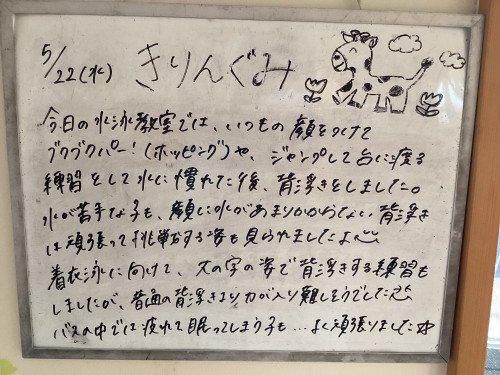 5/22(水) きりんぐみ
今日の水泳教室では、いつもの顔をつけて
ブクブクパー！(ホッピング)や、ジャンプして台に渡る
練習をして水に慣れた後、背浮きをしました。
水が苦手な子も、顔に水があまりかからない背浮き
は頑張って挑戦する姿も見られましたよ
着衣泳に向けて、大の字の姿で背浮きする練習も
しましたが、普通の背浮きより力が入り難しそうでした
バスの中では疲れて眠ってしまう子も…よく頑張りました☆